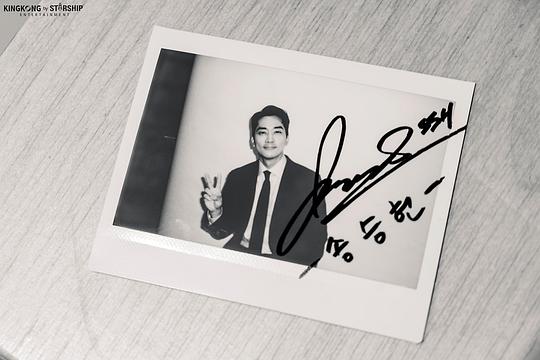 KINGKONG by STARSHIP
ENTERTAINMENT
SSH
-송승헌-